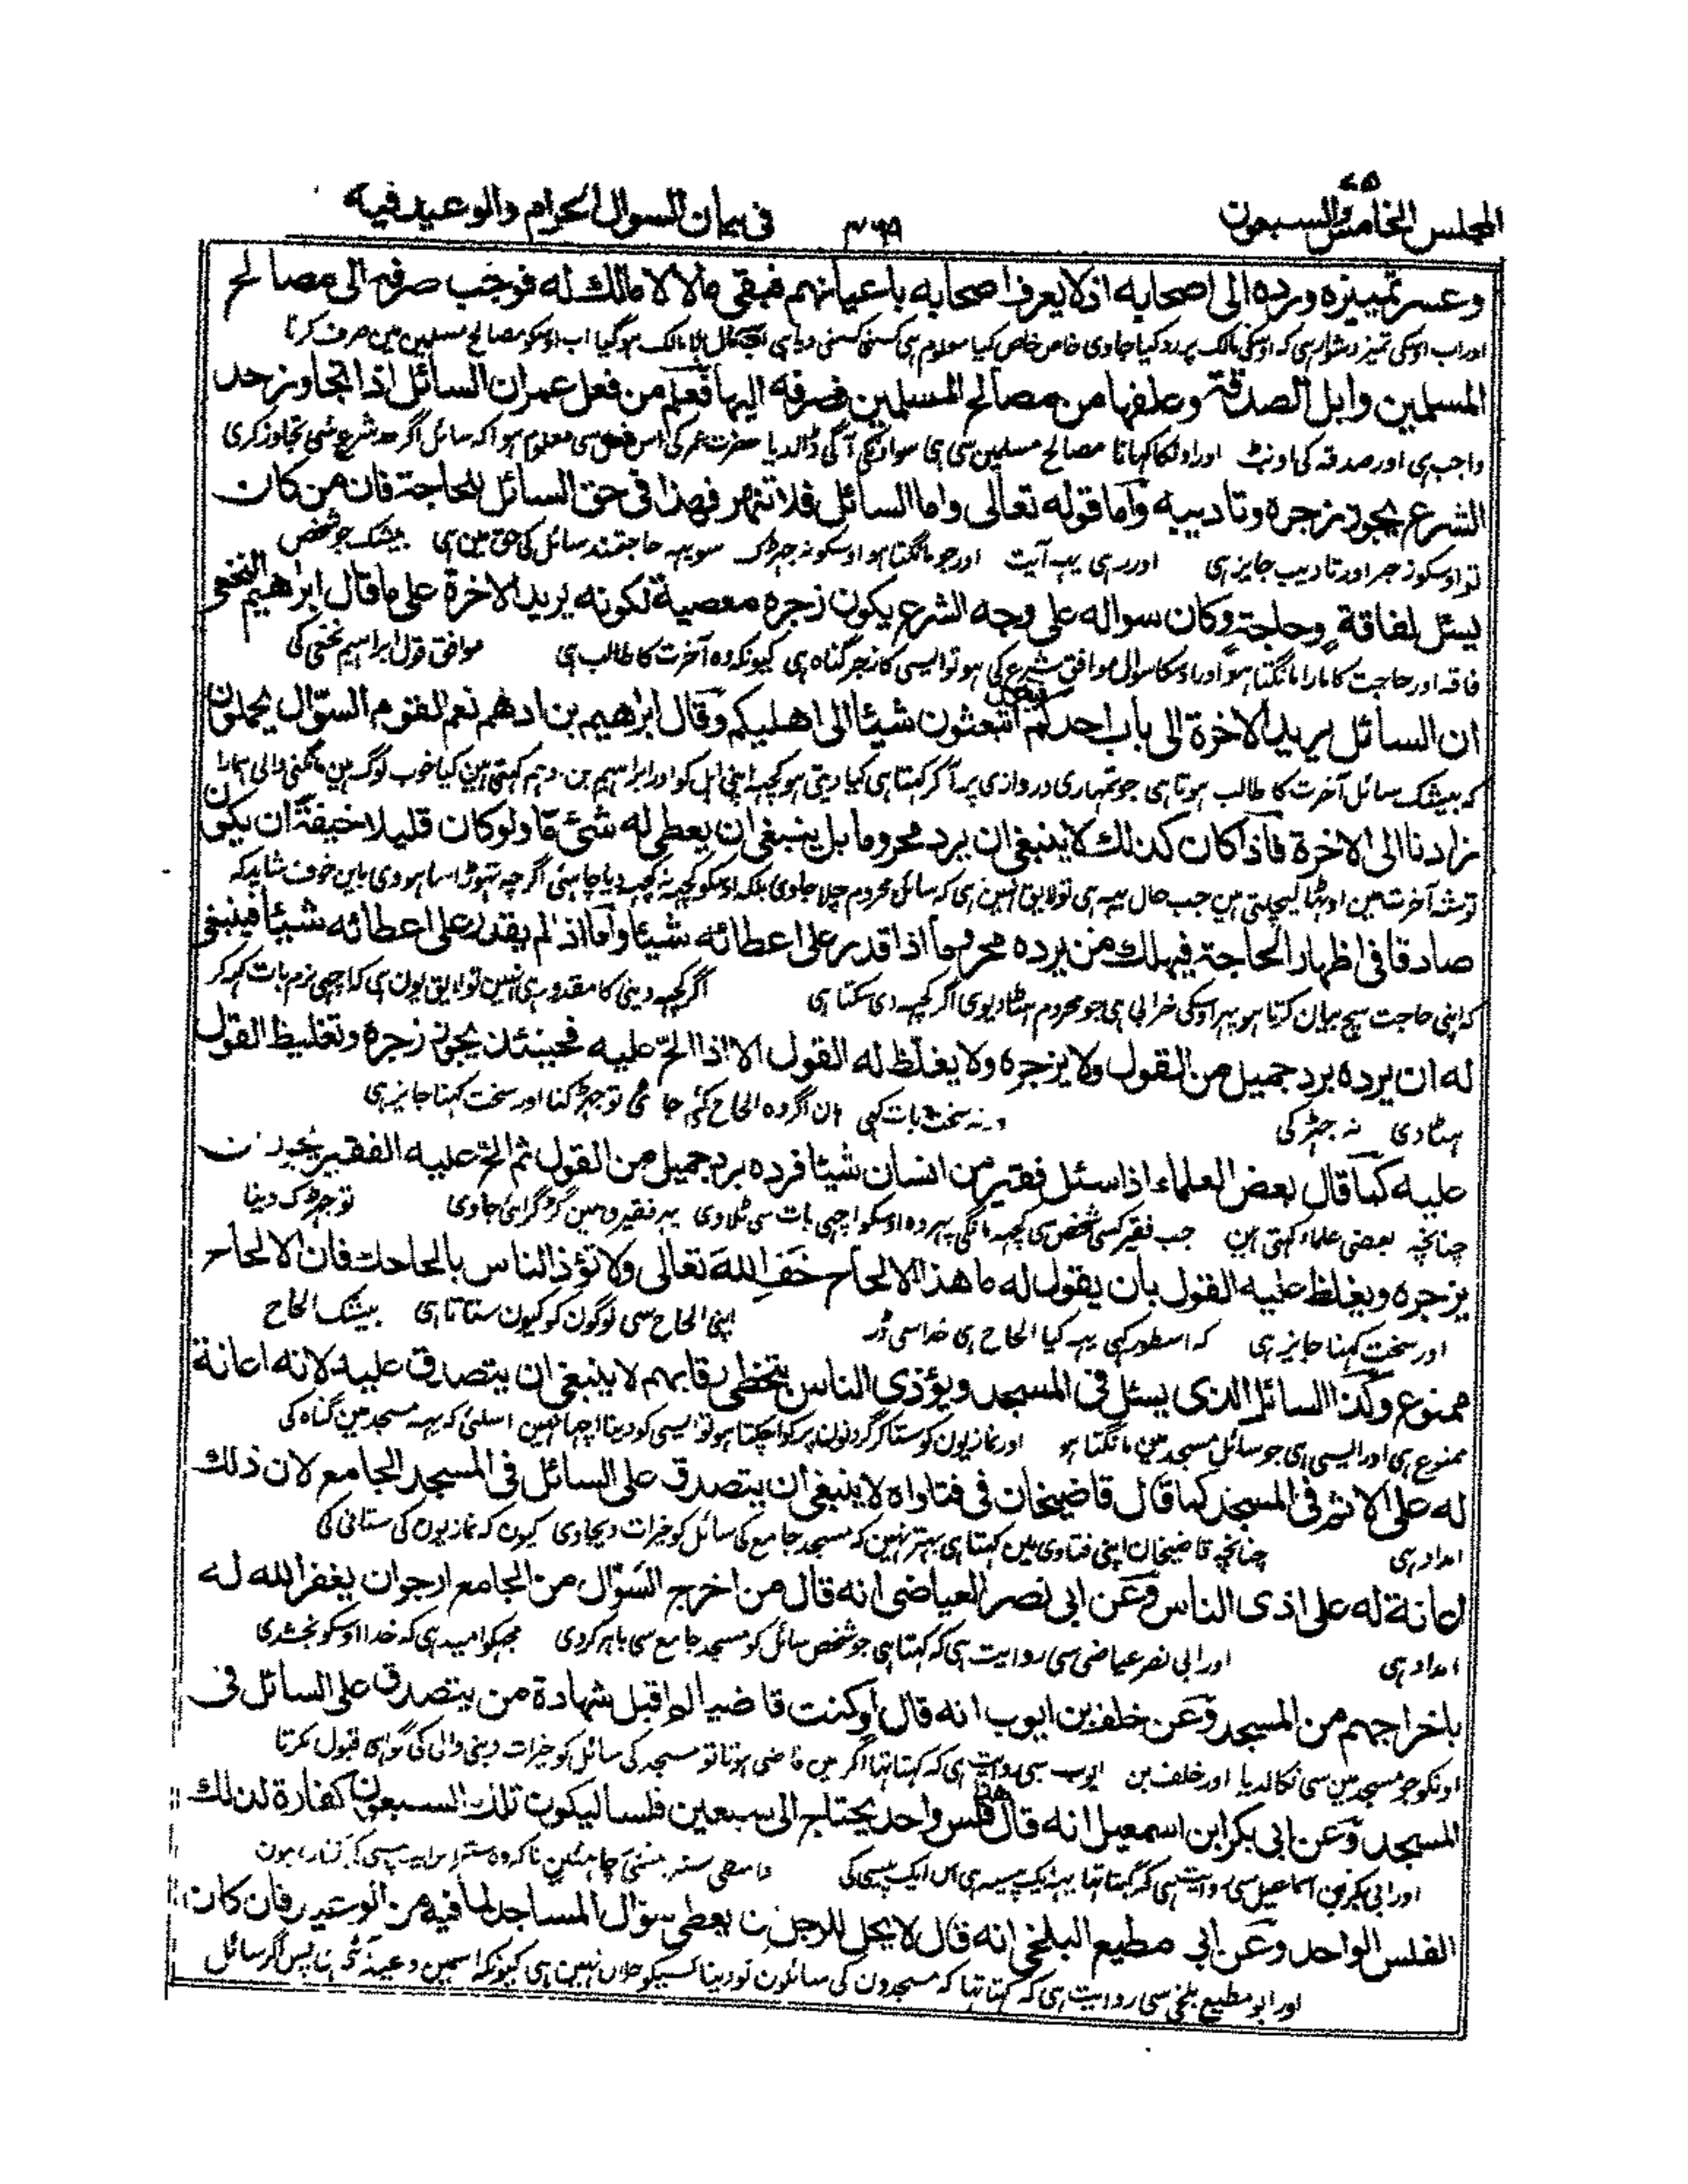 المجلس الخامس والسبعون ۷۵
۴۶۹
فی بیان السوال الحرام والوعید فیه
وعسر تمییزه ورده الی اصحابه اذ لا یعرف اصحابه باعیانهم فیبقی مالا لا مالك له فوجب صرفه الی مصالح
اور اب اوسکی تمیز دشوار ہی کہ اوسکی مالک پر رد کیا جاوی خاص خاص کیا معلوم ہی کسنی کسنی دیا ہی مال لا مالک ہوگیا اب اوسکو مصالح مسلمین مین صرف کرنا
المسلمین وابل الصدقة وعلفها من مصالح المسلمین فصرفه الیها فعلم من فعل عمر ان السائل اذا تجاوز حد
واجب ہی اور صدقہ کی اونٹ اور اونکا کہانا مصالح مسلمین سی ہی سو اونکی آگی ڈالدیا حضرت عمر کی اس فعل سی معلوم ہوا کہ سائل اگر حد شرع سی تجاوز کری
الشرع یجوز زجره وتادیبه واما قوله تعالی واما السائل فلا تنهر فهذا فی حق السائل للحاجة فان من کان
تو اوسکو زجر اور تادیب جایز ہی اور رہی یہہ آیت اور جو مانگتا ہو اوسکو نہ جہڑک سو یہہ حاجتمند سائل کی حق مین ہی بیشک جو شخص
یسئل لفاقة وحاجة وکان سواله علی وجه الشرع یکون زجره معصیة لکونه یرید الاخرة علی ما قال ابراهیم النخعی
فاقہ اور حاجت کا مارا مانگتا ہو اور اوسکا سوال موافق شرع کی ہو تو ایسی کا زجر گناہ ہی کیونکہ وہ آخرت کا طالب ہی موافق قول ابراہیم نخعی کی
ان السائل یرید الاخرة الی باب احدکم اتبعثون شیئا الی اهلیکم وقال ابراهیم بن ادهم نعم القوم السؤال یحملون
کہ بیشک سائل آخرت کا طالب ہوتا ہی جو تمہاری دروازی پر آ کر کہتا ہی کیا دیتی ہو کچہہ اپنی اہل کو اور ابراہیم بن ادہم کہتی ہین کیا خوب لوگ ہین مانگنی والی ہمارا
زادنا الی الاخرة فاذا کان کذلك لا ینبغی ان یرد محروما بل ینبغی ان یعطی له شئ ما ولو کان قلیلا خیفة ان یکون
توشہ آخرت مین اوٹہا لیچلتی ہین جب حال یہہ ہی تو لایق نہین ہی کہ سائل محروم چلا جاوی بلکہ اوسکو کچہہ نہ کچہہ دیا چاہئی اگرچہ تہوڑا سا ہووی باین خوف شاید کہ
صادقا فی اظهار الحاجة فیهلك من یرده محروما اذا قدر علی اعطائه شیئا واما اذا لم یقدر علی اعطائه شیئا فینبغی
کہ اپنی حاجت سچ بیان کرتا ہو پہر اوسکی خرابی ہی جو محروم ہٹا دیوی اگر کچہہ دی سکتا ہی اگر کچہہ دینی کا مقدور ہی نہین تو لایق یون ہی کہ اچہی نرم بات کہہ کر
له ان یرده برد جمیل من القول ولا یزجره ولا یغلظ له القول الا اذا الح علیه فحینئذ یجوز زجره وتغلیظ القول
ہٹا دی نہ جہڑکی نہ سخت بات کہی ان اگر وہ الحاح کئی جائی تو جہڑکنا اور سخت کہنا جایز ہی
علیه کما قال بعض العلماء اذا سئل فقیر من انسان شیئا فرده برد جمیل من القول ثم الح علیه الفقیر یجوز ان
چنانچہ بعضی علماء کہتی ہین جب فقیر کسی شخص سی کچہہ مانگی پہر وہ اوسکو اچہی بات سی ٹلا دی پہر فقیر وہین گڑگڑائی جاوی تو جہڑک دینا
یزجره ویغلظ علیه القول بان یقول له ما هذا الالحاح خف الله تعالی ولا تؤذ الناس بالحاحك فان الالحاح
اور سخت کہنا جایز ہی کہ اسطور کہی یہہ کیا الحاح ہی خدا سی ڈر اپنی الحاح سی لوگون کو کیون ستاتا ہی بیشک الحاح
ممنوع وکذا السائل الذی یسئل فی المسجد ویؤذی الناس بتخطی رقابهم لا ینبغی ان یتصدق علیه لانه اعانة
ممنوع ہی اور ایسی ہی جو سائل مسجد مین مانگتا ہو اور نمازیون کو ستا کر گردنون پر کودا چکتا ہو تو ایسی کو دینا اچہا نہین اسلئی کہ یہہ مسجد مین گناہ کی
له علی الاثم فی المسجد کما قال قاضیخان فی فتاواه لا ینبغی ان یتصدق علی السائل فی المسجد الجامع لان ذلك
امداد ہی چنانچہ قاضیخان اپنی فتاوی مین کہتا ہی بہتر نہین کہ مسجد جامع کی سائل کو خیرات دیجاوی کیون کہ نمازیون کی ستانی کی
اعانة له علی اذی الناس وعن ابی نصر العیاضی انه قال من اخرج السؤال من الجامع ارجو ان یغفر الله له
امداد ہی اور ابی نصر عیاضی سی روایت ہی کہ کہتا ہی جو شخص سائل کو مسجد جامع سی باہر کردی مجہکو امید ہی کہ خدا اوسکو بخشدی
باخراجهم من المسجد وعن خلف بن ایوب انه قال لو کنت قاضیا لم اقبل شهادة من یتصدق علی السائل فی
اونکو جو مسجد مین سی نکالدیا اور خلف بن ایوب سی روایت ہی کہ کہتا تہا اگر مین قاضی ہوتا تو مسجد کی سائل کو خیرات دینی والی کی گواہی قبول نکرتا
المسجد وعن ابی بکر ابن اسمعیل انه قال هذا فلس واحد یحتاج الی سبعین فلسا لیکون تلك السبعون کفارة لذلك
اور ابی بکر بن اسماعیل سی روایت ہی کہ کہتا تہا یہہ ایک پیسہ ہی اس ایک پیسی کی
الفلس الواحد وعن ابی مطیع البلخی انه قال لا یحل للرجل ان یعطی سؤال المساجد لما فیه من الوعید فان کان
اور ابو مطیع بلخی سی روایت ہی کہ کہتا تہا کہ مسجدون کی سائلون کو دینا کسیکو حلال نہین ہی کیونکہ اسمین وعید پس اگر سائل